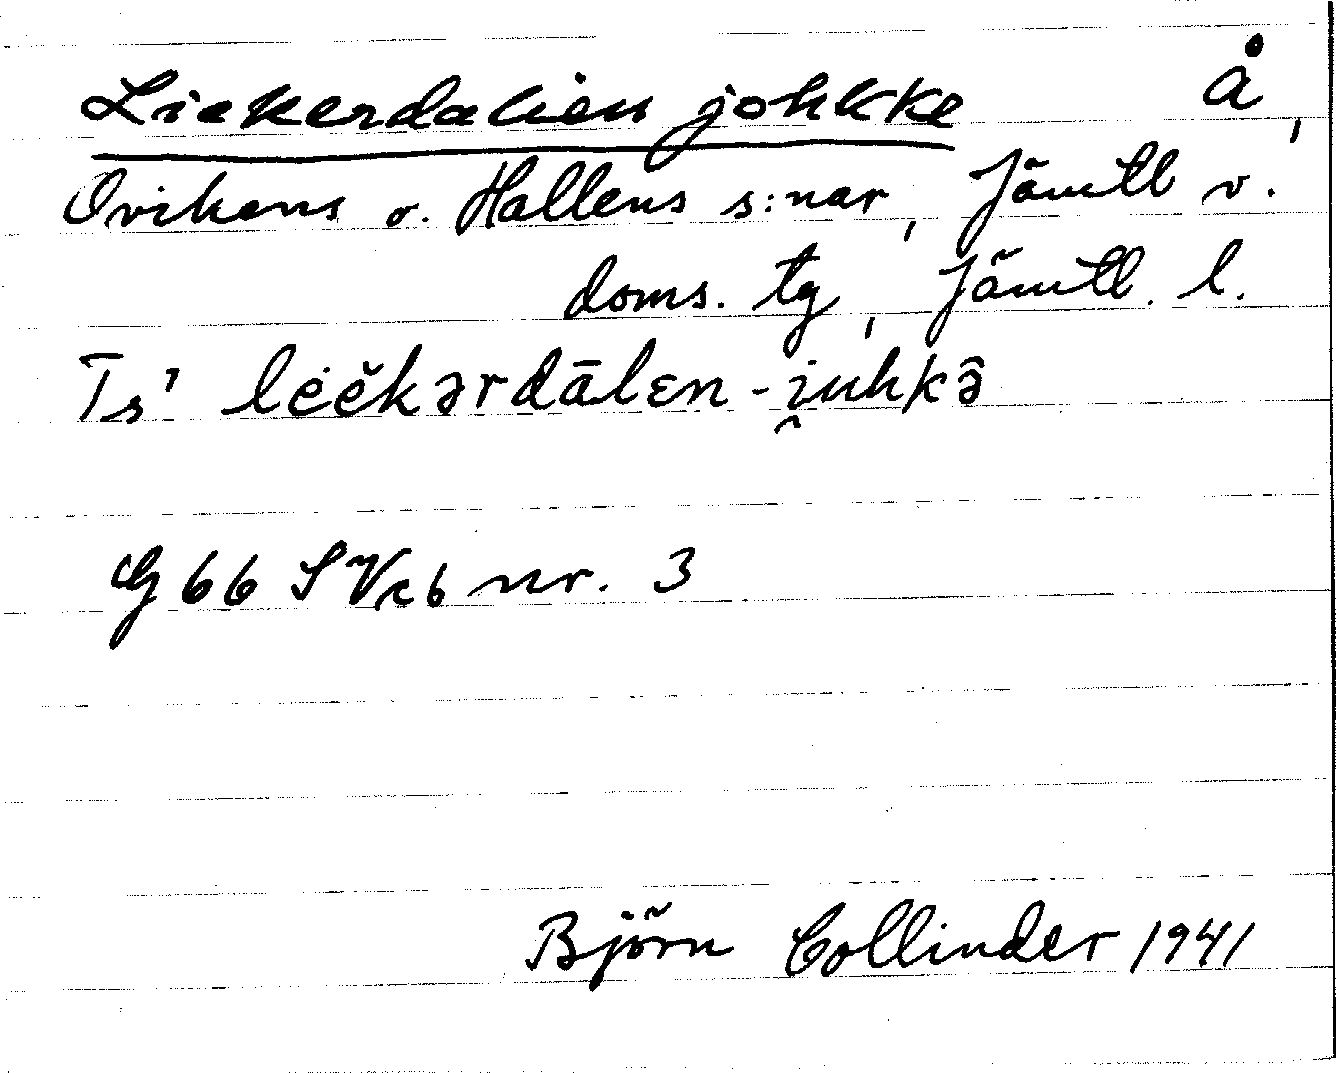 Liekerdalien johkke å,
Ovikens o. Hallens s:nar, Jämtl v.
doms. tg, Jämtl. l.
Ts' lėĕkərdālɛn-i̯uhkə̂
G 66 S Vcb nr. 3
Björn Collinder 1941